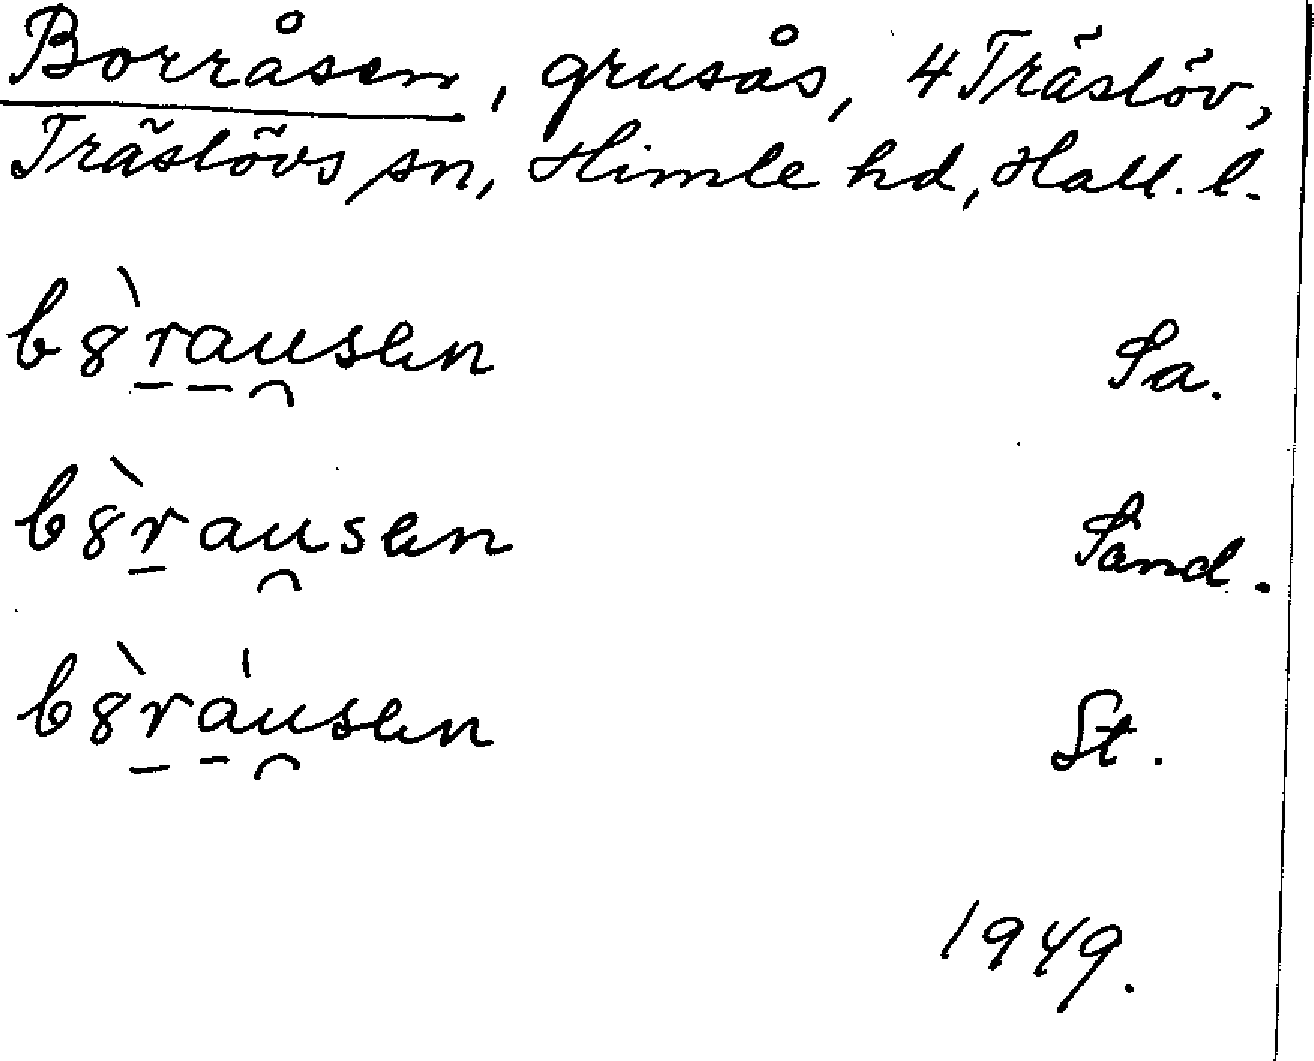 Borråsen, grusås, 4 Träslöv,
Träslövs sn, Himle hd, Hall. l.
b8̀r̲a̲u̯sen Sa.
b8̀r̲au̯sen Sand.
b8̀r̲a̲̍u̯sen St.
1949.